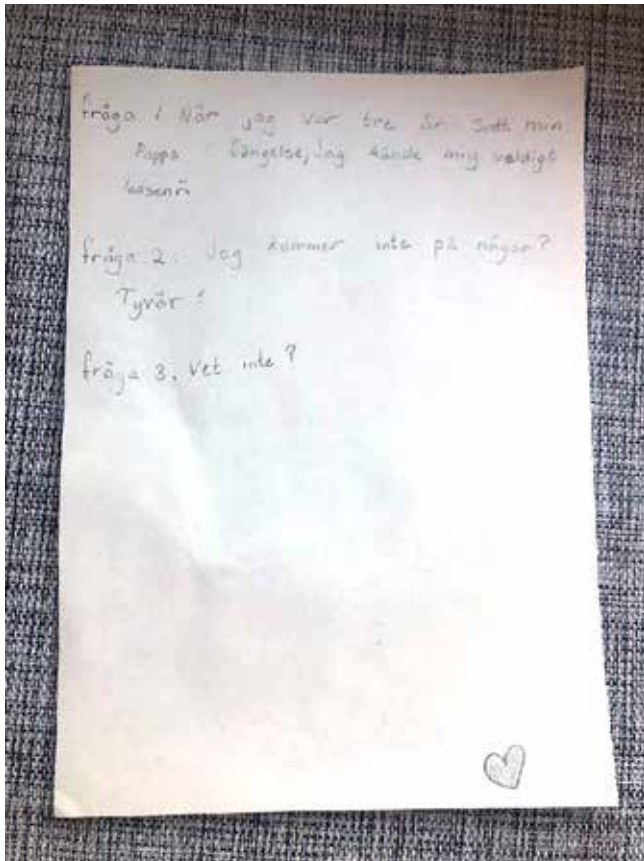 fråga 1 När jag var tre år satt min
Pappa i fängelse, Jag kände mig väldigt
fråga 2. Jag kommer inte på någar?
Tyvär!
fråga 3. Vet inte?